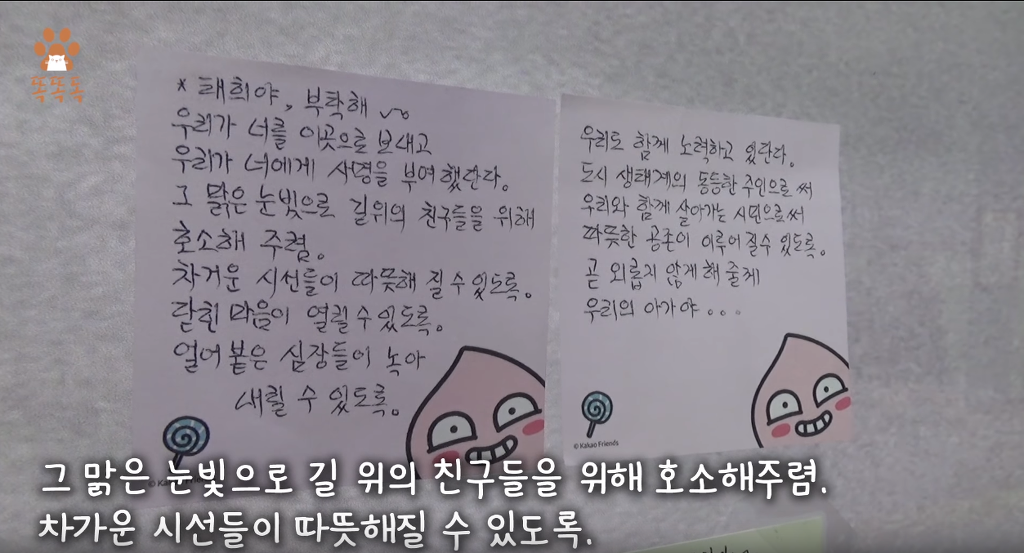 똑똑똑
* 태희야, 부탁해
우리가 너를 이곳으로 보내고
우리가 너에게 사명을 부여했단다.
그 맑은 눈빛으로 길위의 친구들을 위해
호소해 주렴.
차거운 시선들이 따뜻해 질 수 있도록.
닫힌 마음이 열릴 수 있도록.
얼어 붙은 심장들이 녹아
내릴 수 있도록.
우리도 함께 노력하고 있단다.
도시 생태계의 동등한 주인으로 써
우리와 함께 살아가는 시민으로써
따뜻한 공존이 이루어 질수 있도록.
곧 외롭지 않게 해 줄께
우리의 아가야...
© Kakao Friends
그 맑은 눈빛으로 길 위의 친구들을 위해 호소해주렴.
차가운 시선들이 따뜻해질 수 있도록.